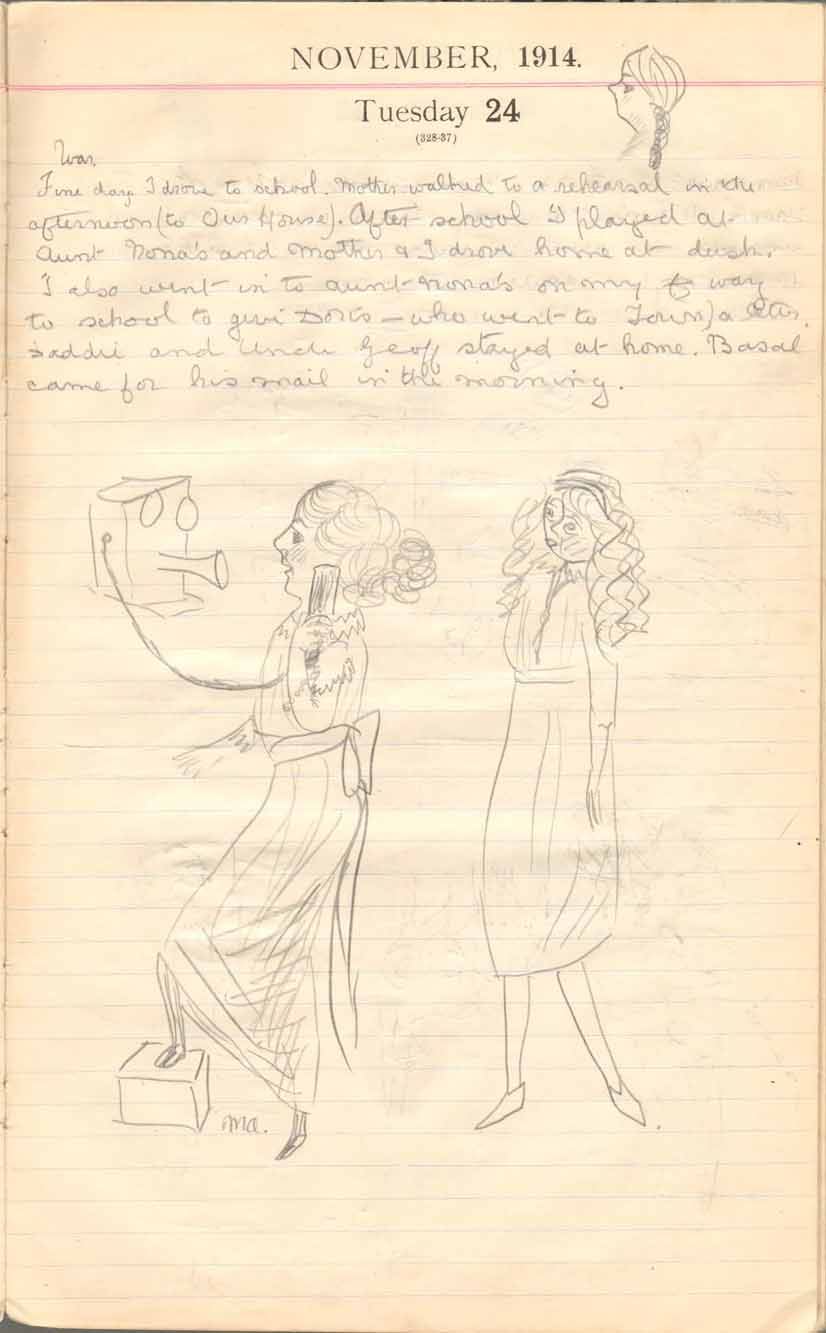 NOVEMBER, 1914.
Tuesday 24
(328-37)
War.
Fine day I drove to school. Mother walked to a rehearsal in the
afternoon (to Our House). After school I played at
Aunt Nona's and Mother & I drove home at dusk.
I also went in to aunt Nona's on my way
to school to give Doris – who went to Town) a
Daddie and Uncle Geoff stayed at home. Basal
came for his mail in the morning.
ma.